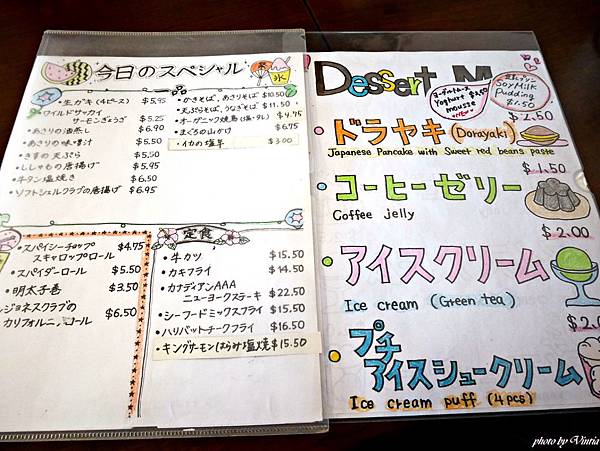 今日のスペシャル
氷
・生ガキ (4ピース) $5.95
・ワイルドサッカイ
サーモンぞうざ $5.25
・あさりの酒蒸し $6.90
・あさりの味噌汁 $5.50
・きすの天ぷら $5.50
・ししゃもの唐揚げ $5.95
・牛タン塩焼き $6.50
・ソフトシェルクラブの唐揚げ $6.95
・かきそば, あさりそば $10.50
・天ぷらそば, うなぎそば $11.50
・オーガニック焼鳥 (塩・タレ) $4.75
・まぐろの山かけ $6.75
・イカの塩辛 $3.00
・スパイシーチョップ
スキャロップロール $4.75
・スパイダーロール $5.50
・明太子巻 $3.50
ンジョネスクラブの
カリフォルニアロール $6.50
定食
・牛カツ $15.50
・カキフライ $14.50
・カナディアンAAA
ニューヨークステーキ $22.50
・シーフードミックスフライ $15.50
・ハリバットチークフライ $16.50
・キングサーモンはらみ塩焼き $15.50
Dessert M
ヨーグルトムース
Yoghurt $3.50
mousse
豆乳プリン
SoyMilk
Pudding
$2.50
$2.50
・ドラヤキ (Dorayaki)
Japanese Pancake with Sweet red beans paste
$1.50
・コーヒーゼリー
Coffee jelly
$2.00
・アイスクリーム
Ice cream (Green tea)
$2.0
・プチ
アイスシュークリーム
Ice cream puff (4pcs)
photo by Vinria